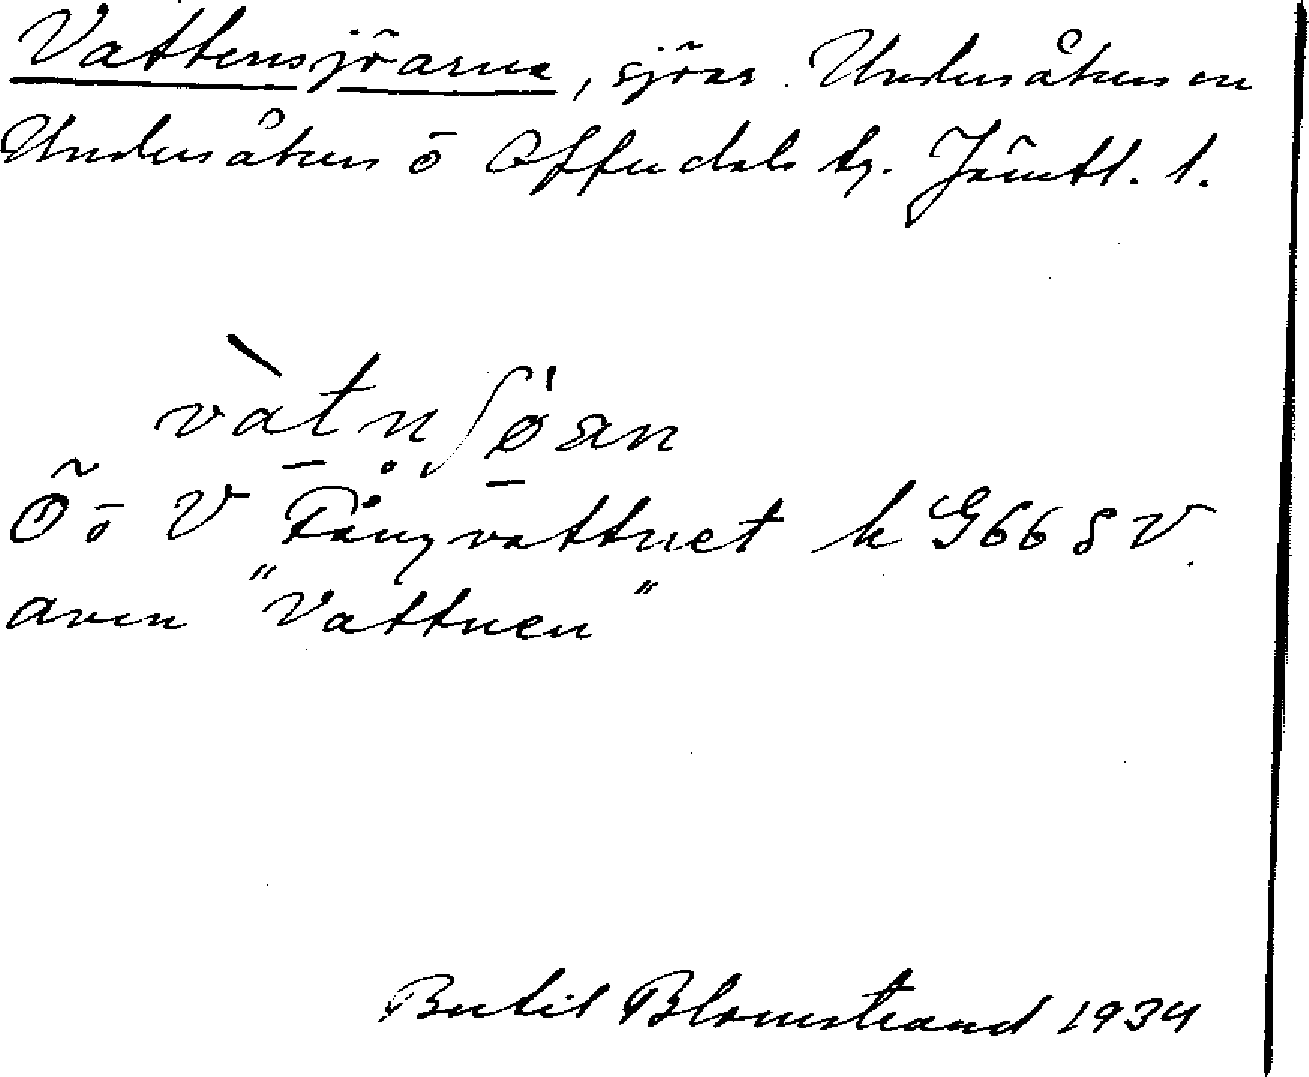 Vattensjöarna, sjöar. Undersåkers sn
Undersåkers o Offerdals tg. Jämtl. l.
vàtnʃøan
Ö o V Rängvattnet k G66 SV.
även "Vattnen"
Bertil Blomstrand 1934